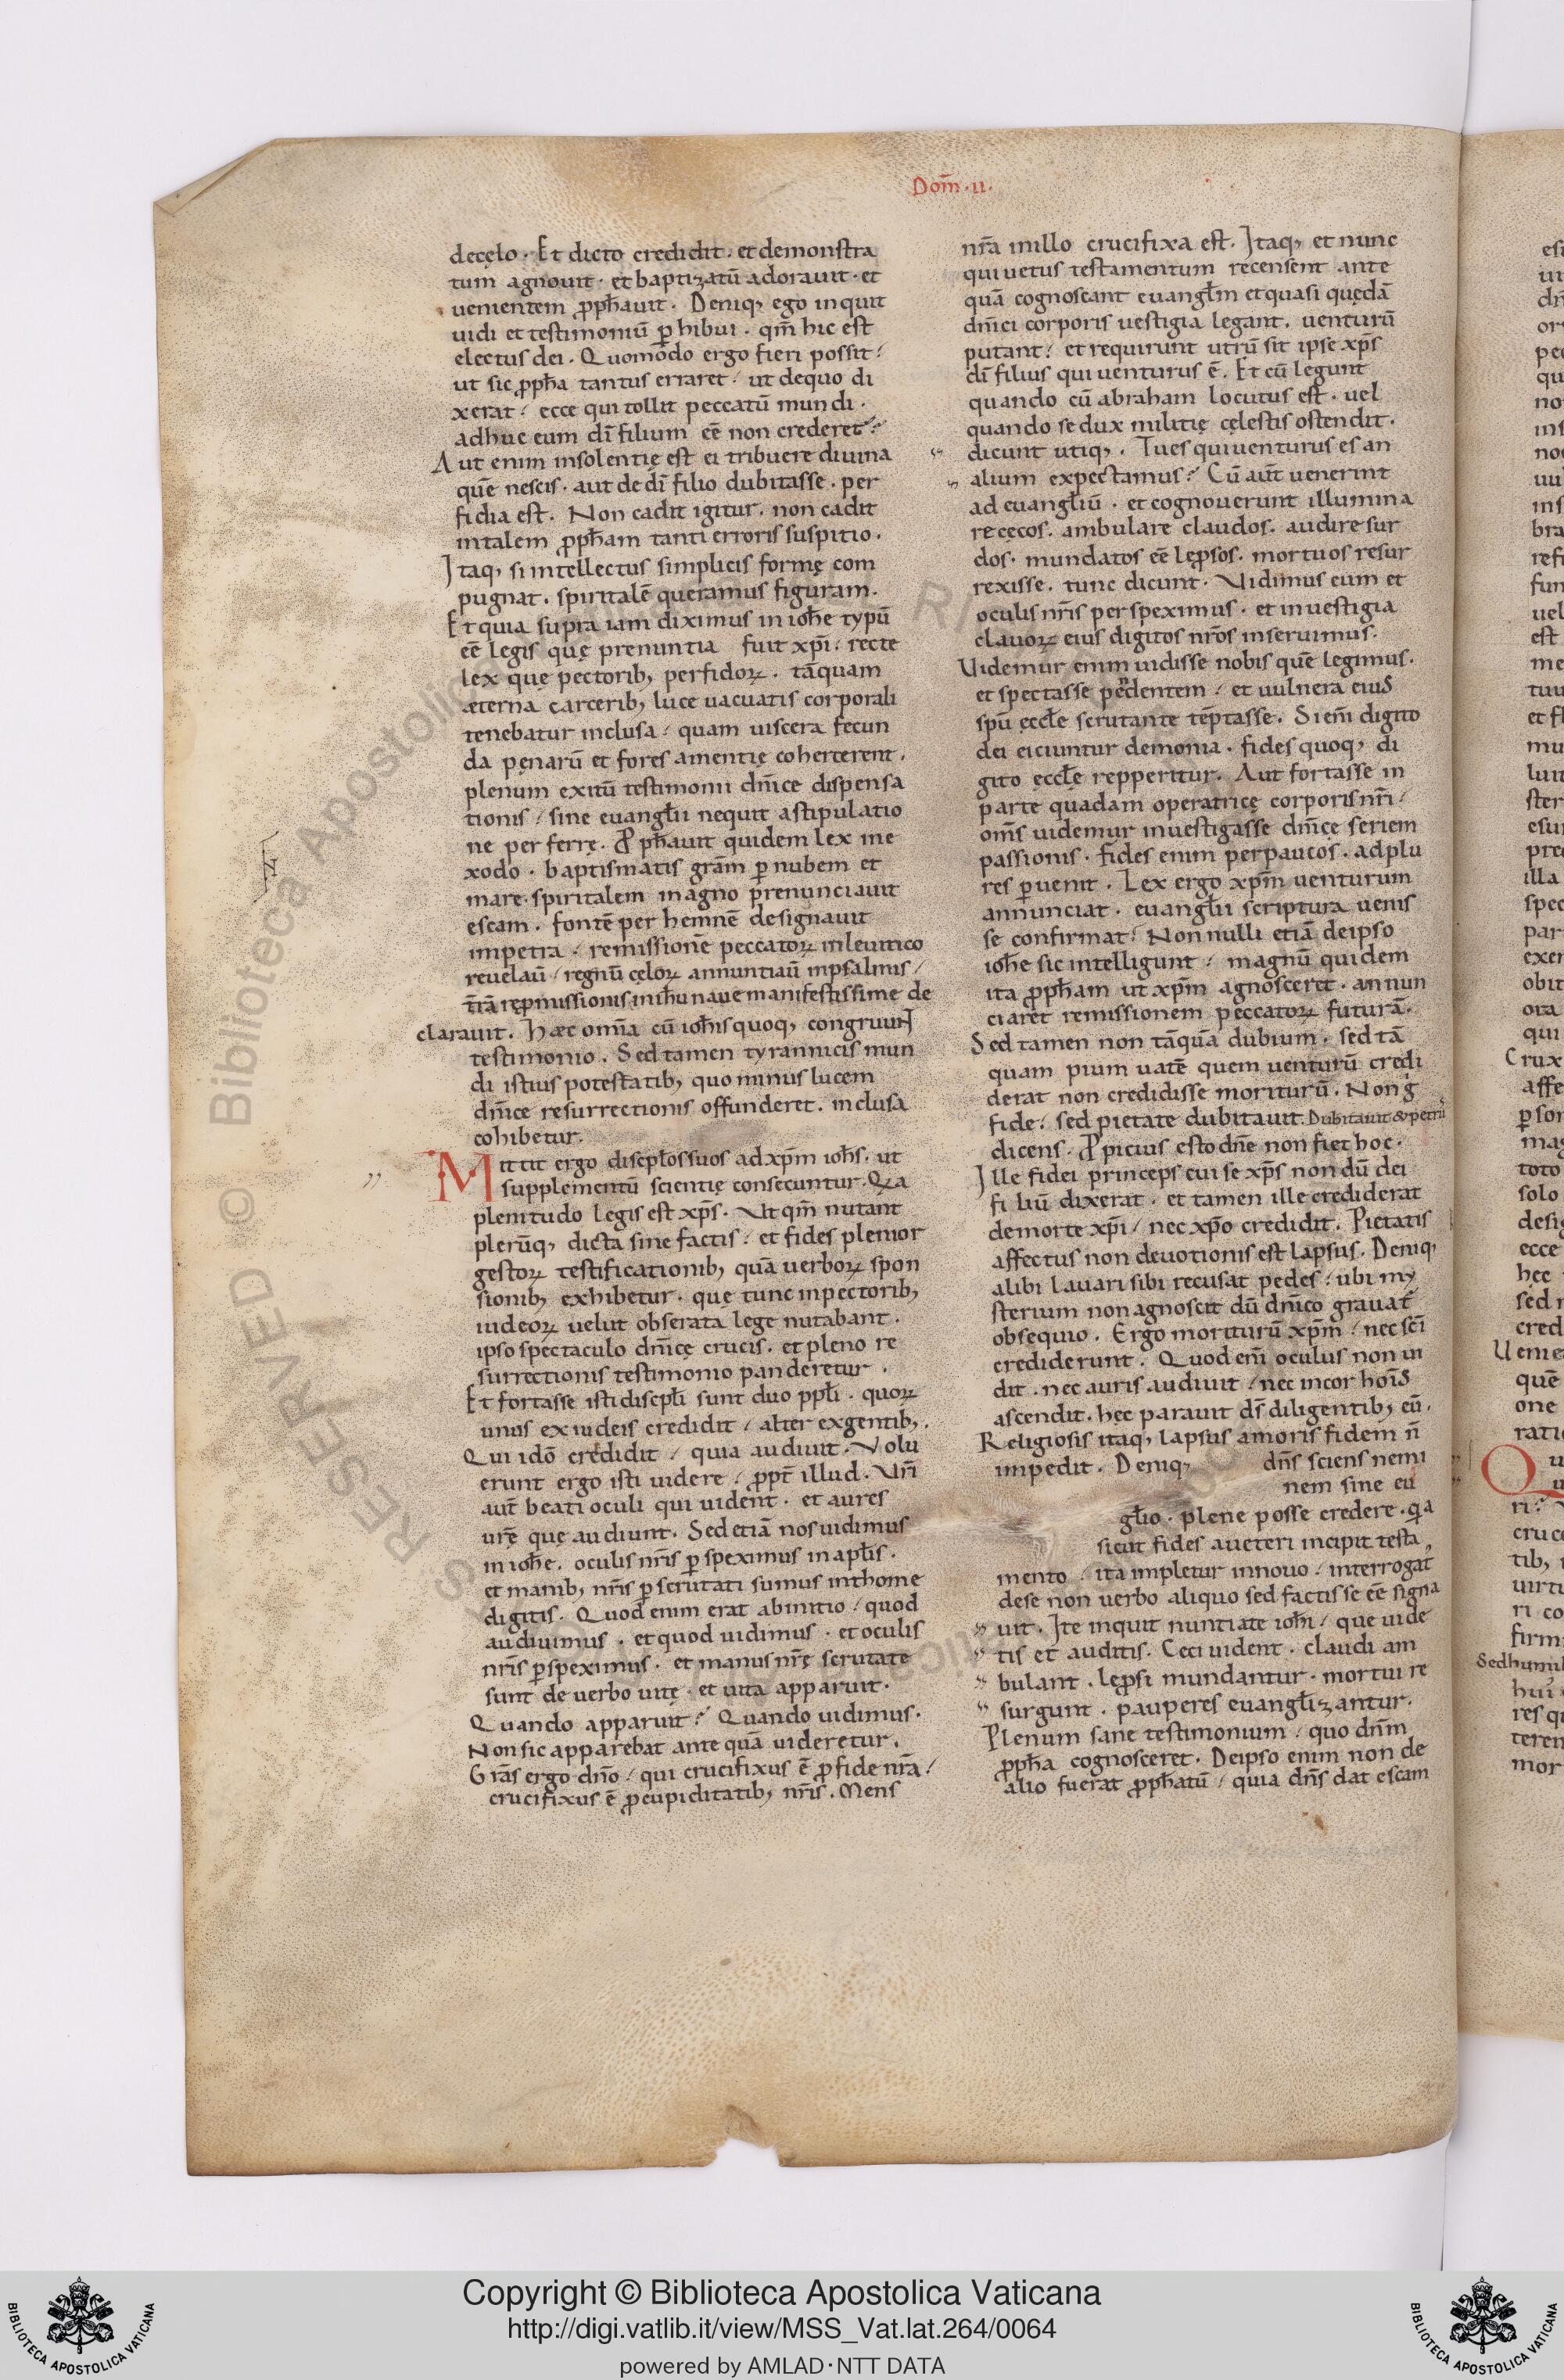 Dom̄·ii·
decęlo · Et dicto credidit · et demonstra
tum agnouit · et baptizatū adorauit · et
uenientem ꝓph̄auit · Deniq, ego inquit
uidi et testimoniū ꝑhibui · qm̄ hic est
electus dei · Quomodo ergo fieri possit ·
ut sic ꝓph̄a tantus erraret · ut dequo di
xerat · ecce qui tollit peccatū mundi ·
adhuc eum dī filium eē non crederet?
Aut enim insolentię est ei tribuere diuina
quē nescis · aut de dī filio dubitasse · per
fidia est. Non cadit igitur · non cadit
intalem ꝓph̄am tanti erroris suspitio ·
Itaq, si intellectus simplicis formę com
pugnat · spiritalē queramus figuram ·
Et quia supra iam diximus in ioh̄e typū
eē legis quę prenuntia fuit xp̄i · recte
lex quę pectorib, perfidoꝝ · tāquam
æterna carcerib, luce uacuatis corporali
tenebatur inclusa · quam uiscera fecun
da pęnarū et fores amentię coherterent ·
plenum exitū testimonii dn̄ice dispensa
tionis · sine euangl̄ii nequit astipulatio
ne per ferrę. Ꝓph̄auit quidem lex ine
xodo · baptismatis grām ꝑ nubem et
mare · spiritalem in agno prenunciauit
escam · fontē per hemnē designauit
impetra · remissionē peccatoꝝ inleuitico
reuelaū · regnū cęloꝝ annuntiaū inpsalmis ·
t̄rā repmissionis inih̄u naue manifestissime de
clarauit. Hæc omn̄a cū ioh̄is quoq, congruunt
testimonio. Sed tamen tyrannicis mun
di istius potestatib, quo minus lucem
dn̄ice resurrectionis offunderet · inclusa
cohibetur.
Mittit ergo discipl̄os suos ad xp̄m ioh̄s · ut
supplementū scientię consecuntur · Qa
plenitudo legis est xp̄s. Ut qm̄ nutant
plerūq, dicta sine factis · et fides plenior
gestoꝝ testificationib, quā uerboꝝ spon
sionib, exhibetur · quę tunc inpectorib,
iudeoꝝ uelut obserata lege nutabant ·
ipso spectaculo dn̄icę crucis · et pleno re
surrectionis testimonio panderetur ·
Et fortasse isti discipl̄i sunt duo ppl̄i · quoꝝ
unus ex iudeis credidit · alter exgentib, ·
Qui idō credidit · quia audiuit · Nolu
erunt ergo isti uidere · ꝓpt̄ illud · Ur̄i
aut̄ beati oculi qui uident · et aures
ur̄ę quę audiunt. Sed etiā nos uidimus
in ioh̄e · oculis nr̄is ꝑspeximus in apl̄is ·
et manib, nr̄is ꝑscrutati sumus inthome
digitis · Quod enim erat abinitio · quod
audiuimus · et quod uidimus · et oculis
nr̄is ꝑspeximus · et manus nr̄ę scrutate
sunt de uerbo uitę · et uita apparuit ·
Quando apparuit? Quando uidimus ·
Non sic apparebat ante quā uideretur ·
Grās ergo dn̄o · qui crucifixus ē ꝓ fide nr̄a ·
crucifixus ē ꝓcupiditatib, nr̄is. Mens
nr̄a inillo crucifixa est. Itaq, et nunc
qui uetus testamentum recensent ante
quā cognoscant euangl̄m et quasi quędā
dn̄ici corporis uestigia legant · uenturū
putant · et requirunt utrū sit ipse xp̄s
dī filius qui uenturus ē. Et cū legunt
quando cū abraham locutus est · uel
quando se dux militię cęlestis ostendit ·
dicunt utiq, · Tu es qui uenturus es an
alium expectamus? Cū aut̄ uenerint
ad euangl̄iū · et cognouerunt illumina
re cęcos · ambulare claudos · audire sur
dos · mundatos eē lępsos · mortuos resur
rexisse · tunc dicunt · Uidimus eum et
oculis nr̄is perspeximus · et inuestigia
clauoꝝ eius digitos nr̄os inseruimus ·
Uidemur enim uidisse nobis quē legimus ·
et spectasse pendentem · et uulnera eius
spū ęccl̄e scrutante tēptasse. Si em̄ digito
dei eiciuntur demonia · fides quoq, di
gito ęccl̄e repperitur. Aut fortasse in
parte quadam operatricę corporis nr̄i ·
om̄s uidemur inuestigasse dn̄icę seriem
passionis · fides enim per paucos · ad plu
res ꝑuenit · Lex ergo xp̄m uenturum
annunciat · euangl̄ii scriptura uenis
se confirmat · Non nulli etiā deipso
ioh̄e sic intelligunt · magnū quidem
ita ꝓph̄am ut xp̄m agnosceret · annun
ciaret remissionem peccatoꝝ futurā ·
Sed tamen non tāquā dubium · sed tā
quam pium uatē quem uenturū credi
derat non credidisse moriturū · Non g̊
fide · sed pietate dubitauit. Dubitauit & petrus
dicens · Ꝓpicius esto dn̄e non fiet hoc ·
Ille fidei princeps cui se xp̄s non dū dei
filiū dixerat · et tamen ille crediderat
demorte xp̄i · nec xp̄o credidit. Pietatis
affectus non deuotionis est lapsus. Deniq,
alibi lauari sibi recusat pedes · ubi my
sterium non agnoscit dū dn̄ico grauat̄
obsequio · Ergo moriturū xp̄m · nec sc̄i
crediderunt. Quod em̄ oculus non ui
dit · nec auris audiuit · nec incor hoīs
ascendit · hęc parauit ds̄ diligentib, eū ·
Religiosis itaq, lapsus amoris fidem n̄
impedit. Deniq, dn̄s sciens nemi
nem sine eu
gl̄io · plene posse credere · qa
sicut fides a ueteri incipit testa
mento · ita impletur innouo · interrogat̄
dese non uerbo aliquo sed factis se eē signa
uit. Ite inquit nuntiate ioh̄i · que uide
tis et auditis. Ceci uident · claudi am
bulant · lęprsi mundantur · mortui re
surgunt · pauperes euangl̄izantur ·
Plenum sane testimonium · quo dn̄m
ꝓph̄a cognosceret. Deipso enim non de
alio fuerat ꝓph̄atū · quia dn̄s dat escam
Copyright © Biblioteca Apostolica Vaticana
http://digi.vatlib.it/view/MSS_Vat.lat.264/0064
powered by AMLAD·NTT DATA